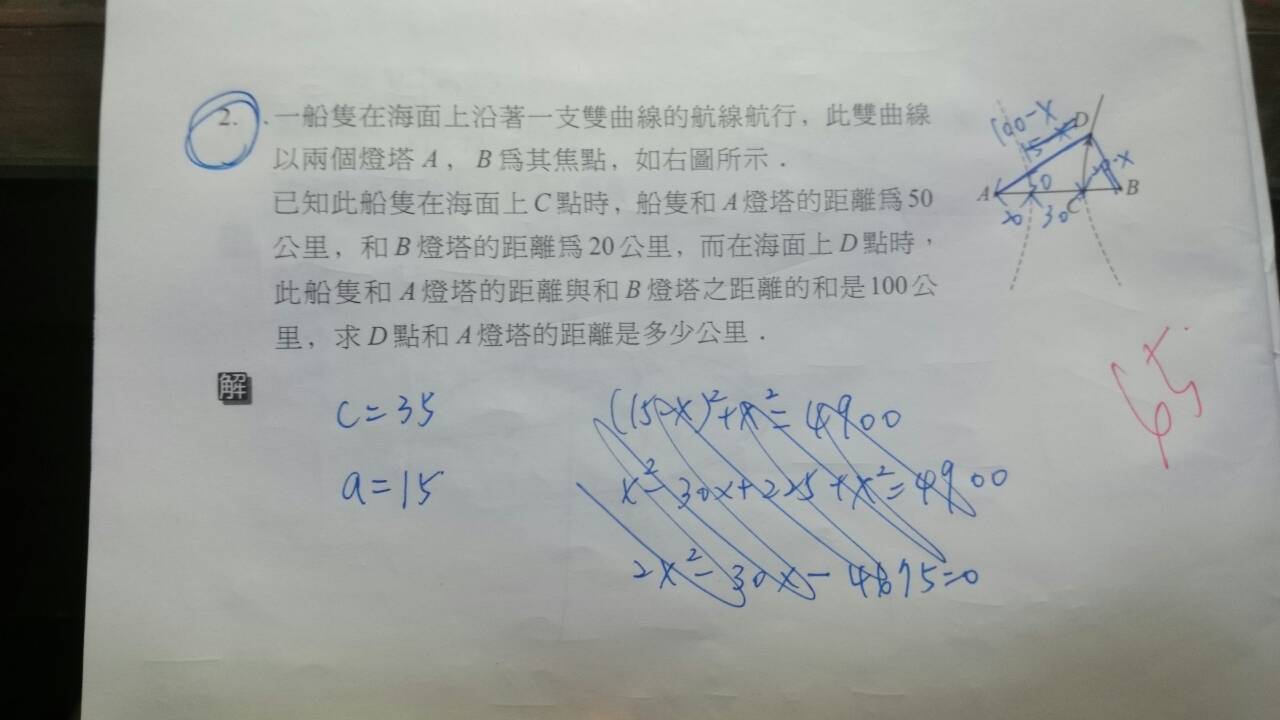 2. 一船隻在海面上沿著一支雙曲線的航線航行，此雙曲線
以兩個燈塔 A，B 爲其焦點，如右圖所示．
已知此船隻在海面上 C 點時，船隻和 A 燈塔的距離爲 50
公里，和 B 燈塔的距離爲 20 公里，而在海面上 D 點時，
此船隻和 A 燈塔的距離與和 B 燈塔之距離的和是 100 公
里，求 D 點和 A 燈塔的距離是多少公里．
100-x
D
A
50
B
20
30
C
解
c=35
a=15
(15-x)²+x²=4900
x²-30x+225+x²=4900
2x²-30x-4675=0
65